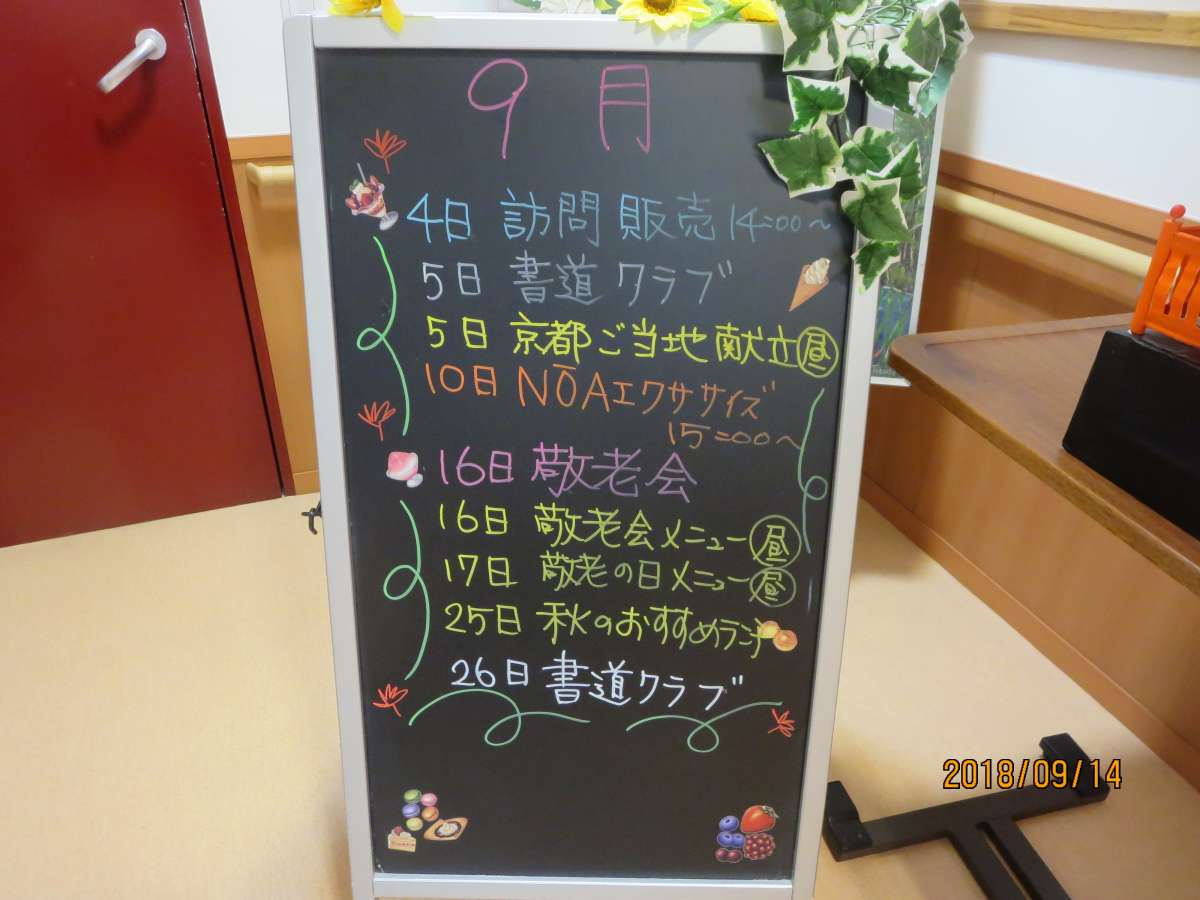 9月
4日 訪問販売 14:00〜
5日 書道クラブ
5日 京都ご当地献立昼
10日 NŌAエクササイズ
15:00〜
16日 敬老会
16日 敬老会メニュー昼
17日 敬老の日メニュー昼
25日 秋のおすすめランチ
26日 書道クラブ
2018/09/14